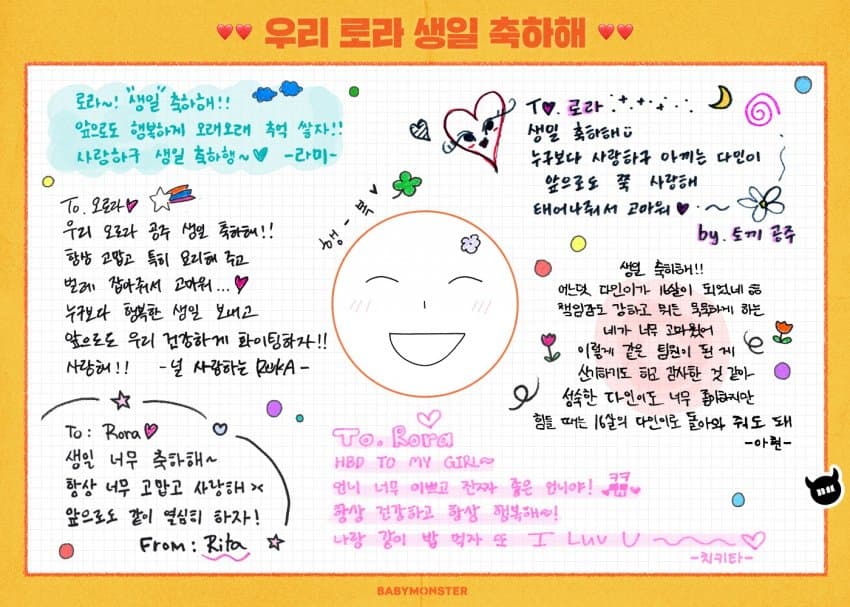 우리 로라 생일 축하해
로라~! "생일" 축하해!!
앞으로도 행복하게 오래오래 추억 쌓자!!
사랑하구 생일 축하행~ -라미-
To. 로라
생일 축하해
누구보다 사랑하구 아끼는 다인이
앞으로도 쭉 사랑해
태어나줘서 고마워 ~
by. 토끼 공주
To. 오로라
우리 오로라 공주 생일 축하해!!
항상 고맙고 특히 요리해 주고
벌레 잡아줘서 고마워...
누구보다 행복한 생일 보내고
앞으로도 우리 건강하게 화이팅하자!!
사랑해!! -널 사랑하는 RUKA-
행-복
생일 축하해!!
어느덧 다인이가 16살이 되었네
책임감도 강하고 뭐든 묵묵하게 하는
네가 너무 고마웠어
이렇게 같은 팀원이 된 게
신기하기도 하고 감사한 것 같아
성숙한 다인이도 너무 좋아하지만
힘들 때는 16살의 다인이로 돌아와 줘도 돼
-아현-
To: Rora
생일 너무 축하해~
항상 너무 고맙고 사랑해 ><
앞으로도 같이 열심히 하자!
From: Rita
To. Rora
HBD TO MY GIRL~
언니 너무 이쁘고 진짜 좋은 언니야! ㅋㅋ
항상 건강하고 항상 행복해~!
나랑 같이 밥 먹자 또 I Luv U
-치키타-
BABYMONSTER